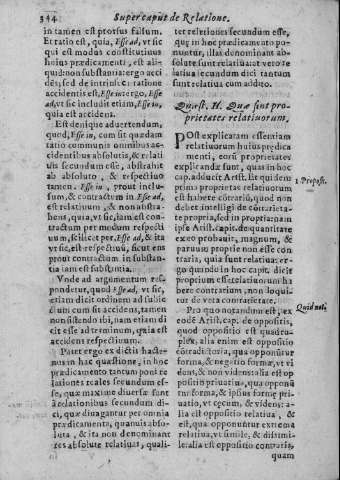 344 Super caput de Relatione.
in tamen est prorsus falsum.
Et ratio est, quia, Esse ad, vt sic
qui est modus constitutiuus
huius prædicamenti, est ali-
quid: non substantia: ergo acci-
dés, sed de intrinseca ratione
accidentis est, Esse in: ergo, Esse
ad, vt sic includit etiam, Esse in,
quia est accidens.
Est denique aduertendum,
quod, Esse in, cum sit quædam
ratio communis omnibus ac-
cidentibus absolutis, & relati
uis secundum esse, abstrahit
ab absoluto, & respectiuo
tamen. Esse in, prout inclu-
sum, & contractum in Esse ad,
est relatiuum, & non abstra-
hens, quia, vt sic, iam est con-
tractum per modum respecti
uum, scilicet per, Esse ad, & ita
vt sic, est respectiuũ, sicut ens
prout contractum in substan-
tia iam est substãtia.
Vnde ad argumentum res-
pondetur, quod Esse ad, vt sic,
etiam dicit ordinem ad subie
ctum cum sit accidens, tamen
non sistendo ibi, nam etiam di
cit esse ad terminum, quia est
accidens respectiuum.
Patet ergo ex dictis hacte-
nus in hac quæstione, in hoc
prædicamento tantum poni re
lationes reales secundum es-
se, quæ maxime diuersæ sunt
à relationibus secundum di-
ci, quæ diuagantur per omnia
prædicamenta, quamuis abso-
luta, & ita non denominant
res absolute relatiuas, quali-
ter relationes secundum esse,
quæ in hoc prædicamento po-
nuntur, illas denominant abso
lute sunt relatiua: at vero re
latiua secundum dici tantum
sunt relatiua cum addito.
Quæst. II. Quæ sint pro-
prietates relatiuorum.
POst explicatam essentiam
relatiuorum huius prædi
camenti, eorũ proprietates
explicandæ sunt, quas in hoc
cap. adducit Arist. Et qui dem
prima proprietas relatiuorum
est habere cõtrariũ, quod non
debet intelligi de cõtrarieta-
te propria, sed in propria: nam
ipse Arist. cap. de quantitate
ex eo probauit, magnum, &
paruum propriè non esse cõn
traria, quia sunt relatiua: er-
go quundo in hoc capit. dicit
proprium esse relatiuorum ha
bere contrarium, non loqui-
tur de vera contrarietate.
1 Propost.
Pro quo notandum est, ex
eodẽ Arist. cap. de oppositis,
quod oppositio est quadru-
plex, alia enim est oppositio
cõtradictoria, qua opponũtur
forma, & negatio formæ, vt vi
dent, & non videns: alia est op
positio priuatiua, qua opponũ
tur forma, & ipsius formę pri-
uatio, vt cęcum, & videns: a-
lia est oppositio relatiua, &
est, qua opponuntur extrema
relatiua, vt simile, & dissimi-
le: alia est oppositio contraria
quam